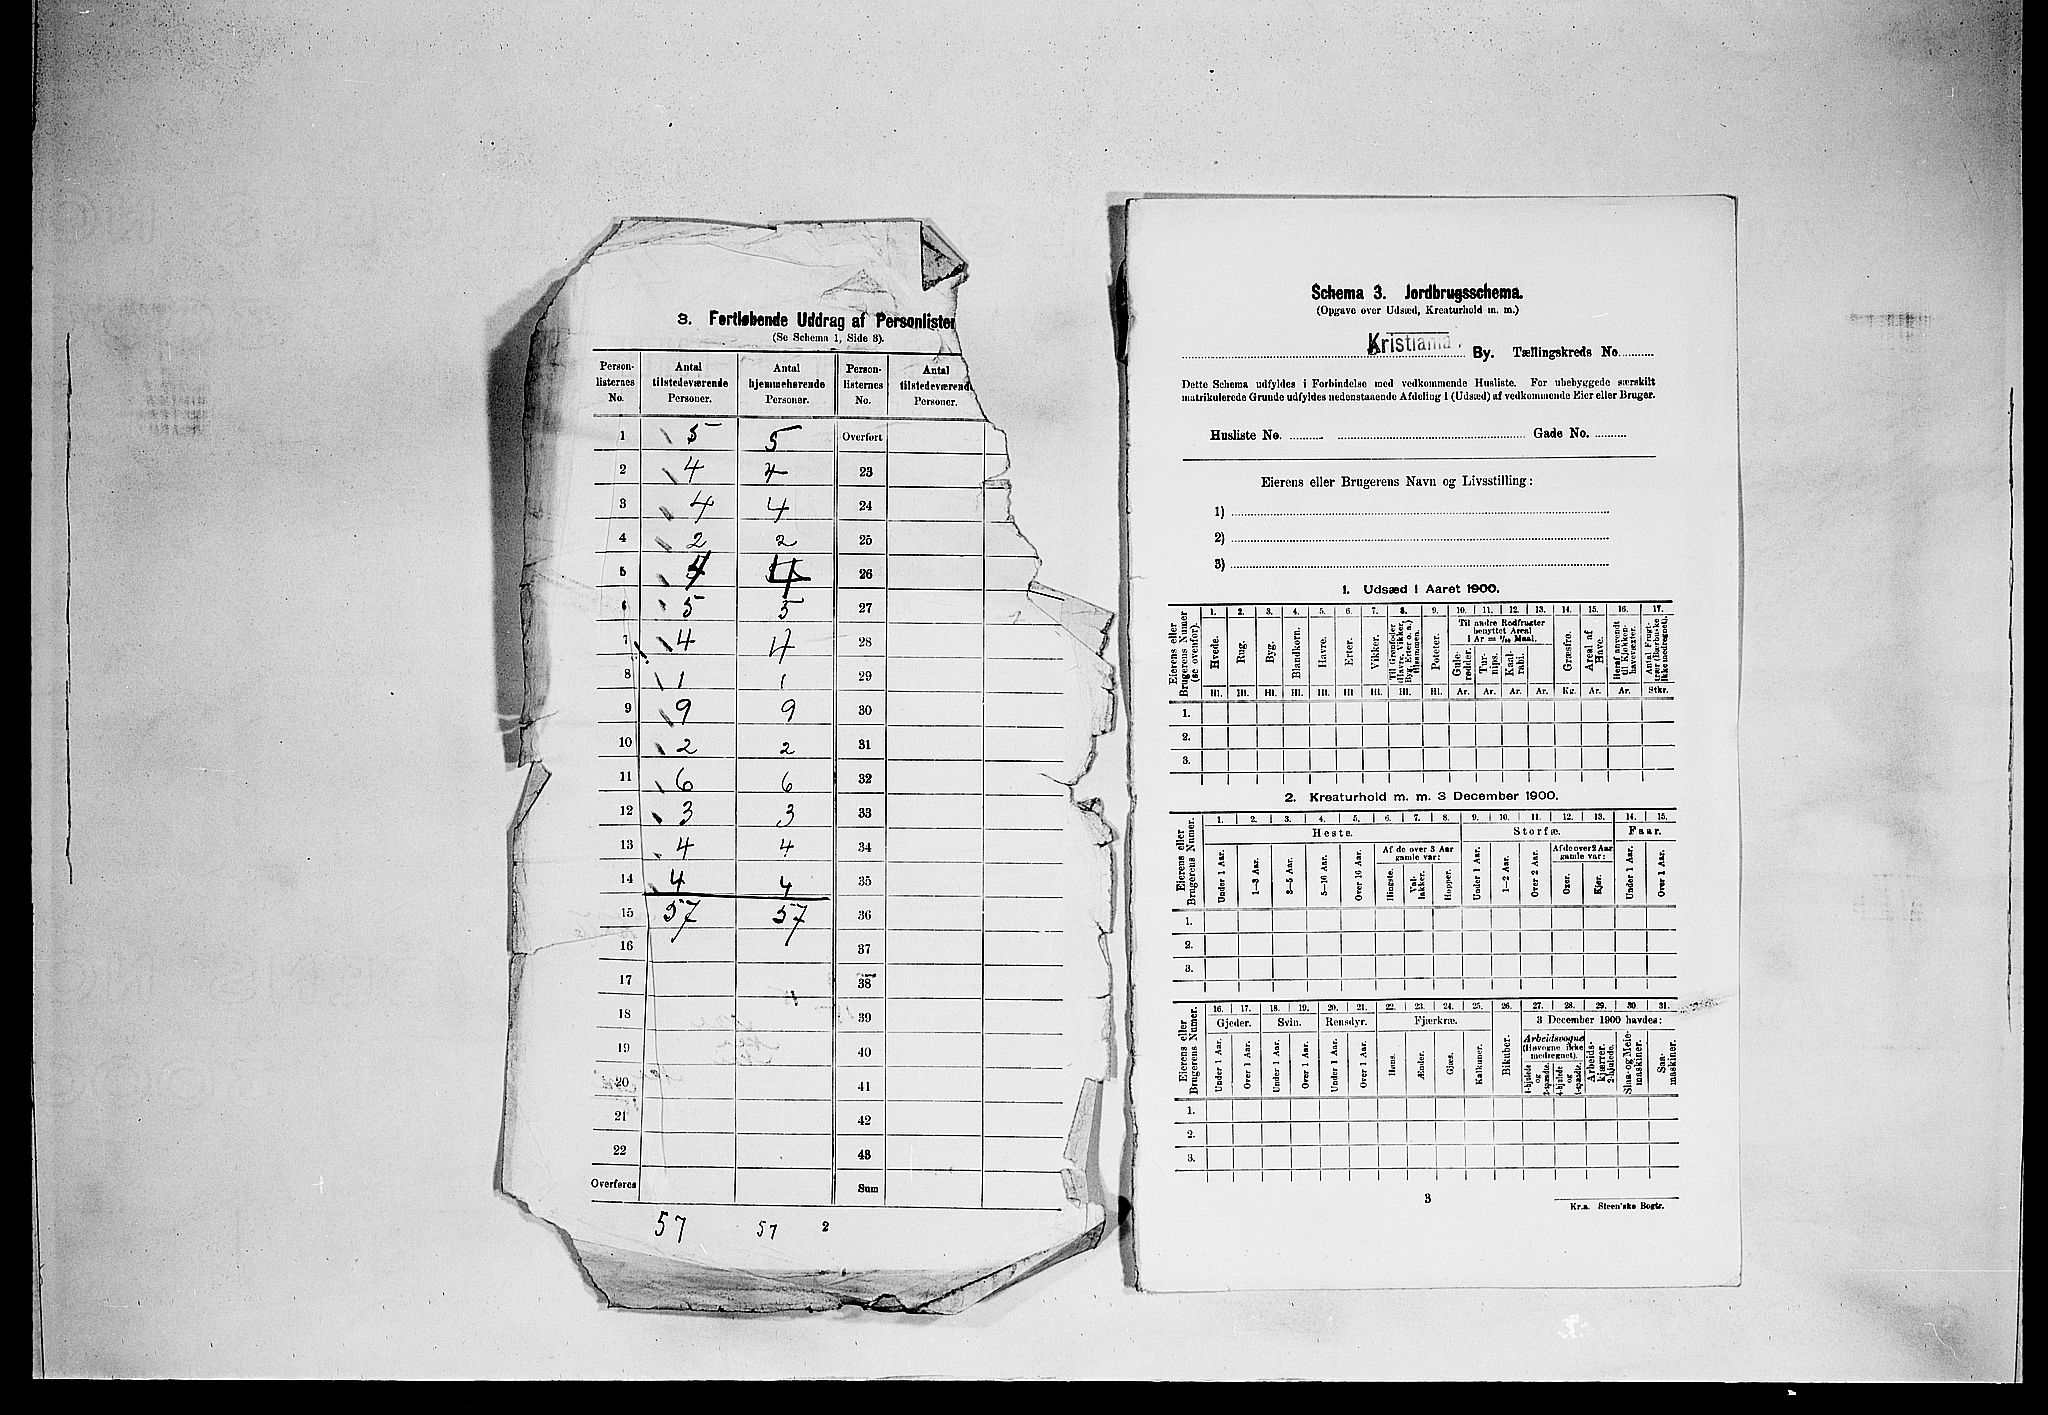 3. Fortløbende Uddrag af Personlister
(Se Schema 1, Side 3).
Person-listernes No. | Antal tilstedeværende Personer. | Antal hjemmehørende Personer. | Person-listernes No. | Antal tilstedeværende Personer.
1 | 5 | 5 | Overført
2 | 4 | 4 | 23
3 | 4 | 4 | 24
4 | 2 | 2 | 25
5 | 4 | 4 | 26
6 | 5 | 5 | 27
7 | 4 | 4 | 28
8 | 1 | 1 | 29
9 | 9 | 9 | 30
10 | 2 | 2 | 31
11 | 6 | 6 | 32
12 | 3 | 3 | 33
13 | 4 | 4 | 34
14 | 4 | 4 | 35
15 | 57 | 57 | 36
16 | 37
17 | 38
18 | 39
19 | 40
20 | 41
21 | 42
22 | 43
Overføres | Sum
57 57 2
Schema 3. Jordbrugsschema.
(Opgave over Udsæd, Kreaturhold m. m.)
Kristiania By. Tællingskreds No.
Dette Schema udfyldes i Forbindelse med vedkommende Husliste. For ubebyggede særskilt
matrikulerede Grunde udfyldes nedenstaaende Afdeling 1 (Udsæd) af vedkommende Eier eller Bruger.
Husliste No. Gade No.
Eierens eller Brugerens Navn og Livsstilling:
1)
2)
3)
1. Udsæd i Aaret 1900.
1. 2. 3. 4. 5. 6. 7. 8. 9. 10. 11. 12. 13. 14. 15. 16. 17.
Eierens eller Brugerens Numer (se ovenfor). | Hvede. | Rug. | Byg. | Blandkorn. | Havre. | Erter. | Vikker. | Til Grønfoder (Havre, Vikker, Byg, Erter o. a.) tilsammen. | Poteter. | Til andre Rodfrugter benyttet Areal 1 Ar = 1/10 Maal. | Gulerødder. | Turnips. | Kaalrabi. | Græsfrø. | Areal af Have. | Heraf anvendt til Kjøkkenhavevæxter. | Antal Frugttrær (Bærbuske ikke medregnet).
Hl. Hl. Hl. Hl. Hl. Hl Hl. Hl. Hl. Ar. Ar. Ar. Ar. Kg. Ar. Ar. Stkr.
1.
2.
3.
2. Kreaturhold m. m. 3 December 1900.
1. 2. 3. 4. 5. 6. 7. 8. 9. 10. 11. 12. 13. 14. 15.
Eierens eller Brugerens Numer. | Heste. | Storfæ. | Faar.
Af de over 3 Aar gamle var: | Af de over 2 Aar gamle var:
Under 1 Aar. | 1—3 Aar. | 3—5 Aar. | 5—16 Aar. | Over 16 Aar. | Hingste. | Vallakker. | Hopper. | Under 1 Aar. | 1—2 Aar. | Over 2 Aar. | Oxer. | Kjør. | Under 1 Aar. | Over 1 Aar.
1.
2.
3.
16. 17. 18. 19. 20. 21. 22. 23. 24. 25. 26. 27. 28. 29. 30 31.
Eierens eller Brugerens Numer. | Gjeder. | Svin. | Rensdyr. | Fjærkræ. | Bikuber. | 3 December 1900 havdes:
Arbeidsvogne (Høvogne ikke medregnet).
Under 1 Aar. | Over 1 Aar. | Under 1 Aar. | Over 1 Aar. | Under 1 Aar. | Over 1 Aar. | Høns. | Ænder. | Gjæs. | Kalkuner. | 4-hjulede og 2-spændte. | 4-hjulede og 1-spændte. | Arbeidskjærrer. 2-hjulede. | Slaa- og Meiemaskiner. | Saamaskiner.
1.
2.
3.
3
Kr.a. Steen'ske Bogtr.